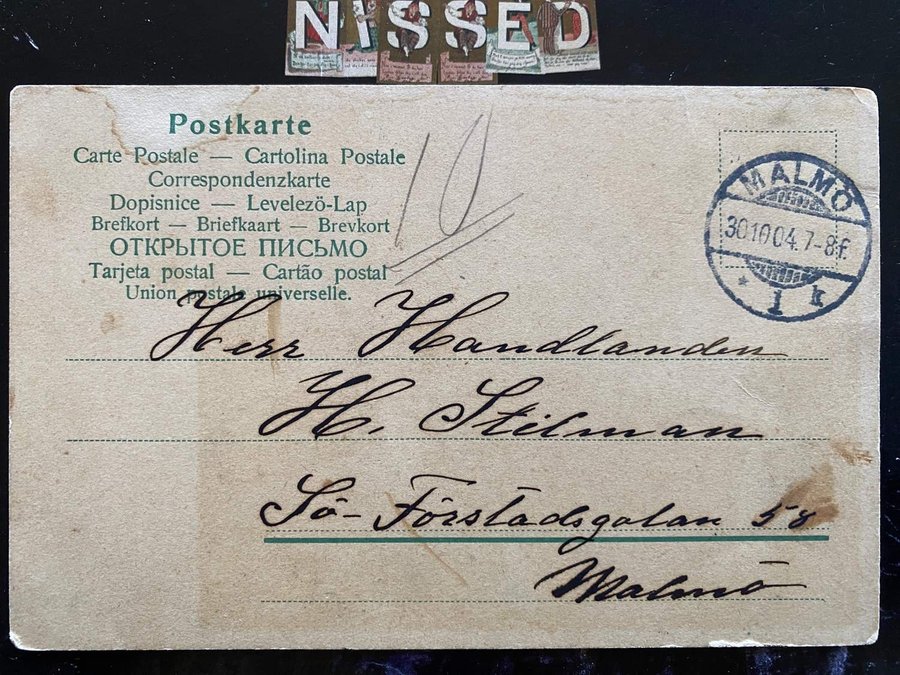 NISSED
Postkarte
Carte Postale — Cartolina Postale
Correspondenzkarte
Dopisnice — Levelezö-Lap
Brefkort — Briefkaart — Brevkort
ОТКРЫТОЕ ПИСЬМО
Tarjeta postal — Cartão postal
Union postale universelle.
10
MALMÖ
30.10.04.7-8f.
* 1 k
Herr Handlanden
H. Stilman
Sö- Förstadsgatan 58
Malmö